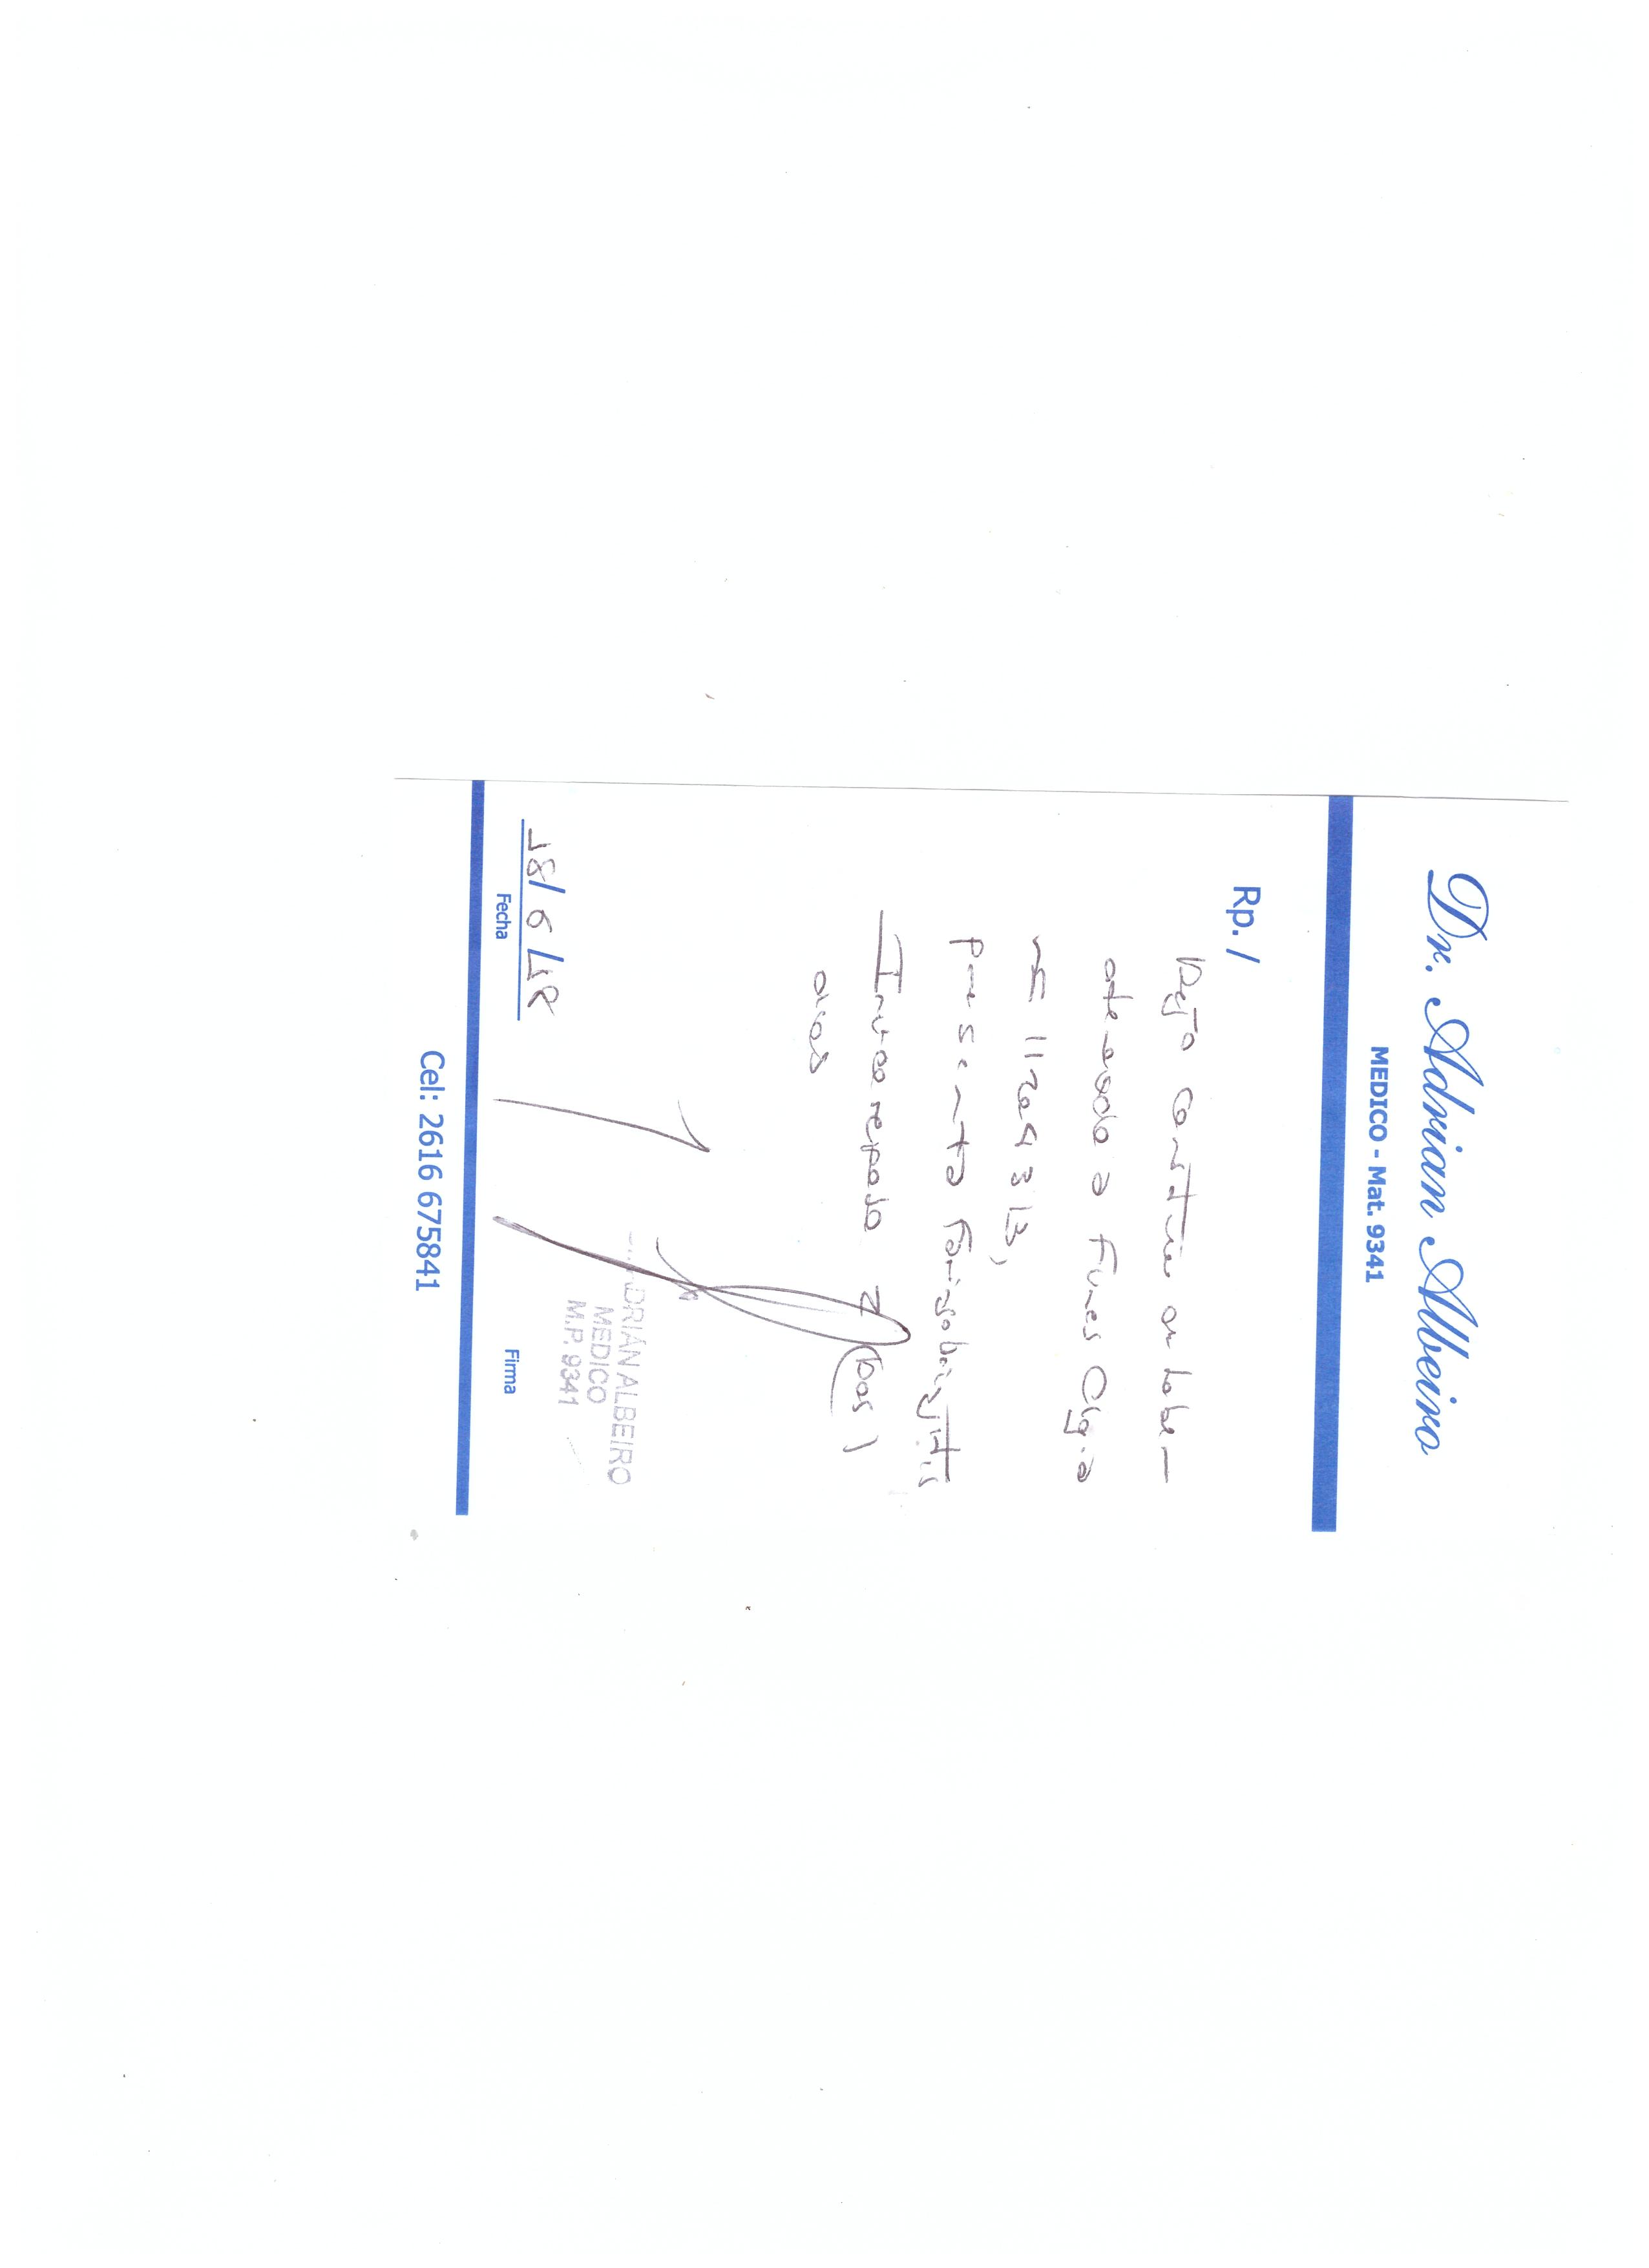 Dr. Adrian Albeiro
MEDICO - Mat. 9341
Rp. /
Dejo constancia de haber
atendido a Funes Olga
11264313,
presenta Faringoamigdalitis
Indico reposo 2 (dos)
días
18/6/18
Fecha
ADRIÁN ALBEIRO
MEDICO
M.P. 9341
Firma
Cel: 2616 675841